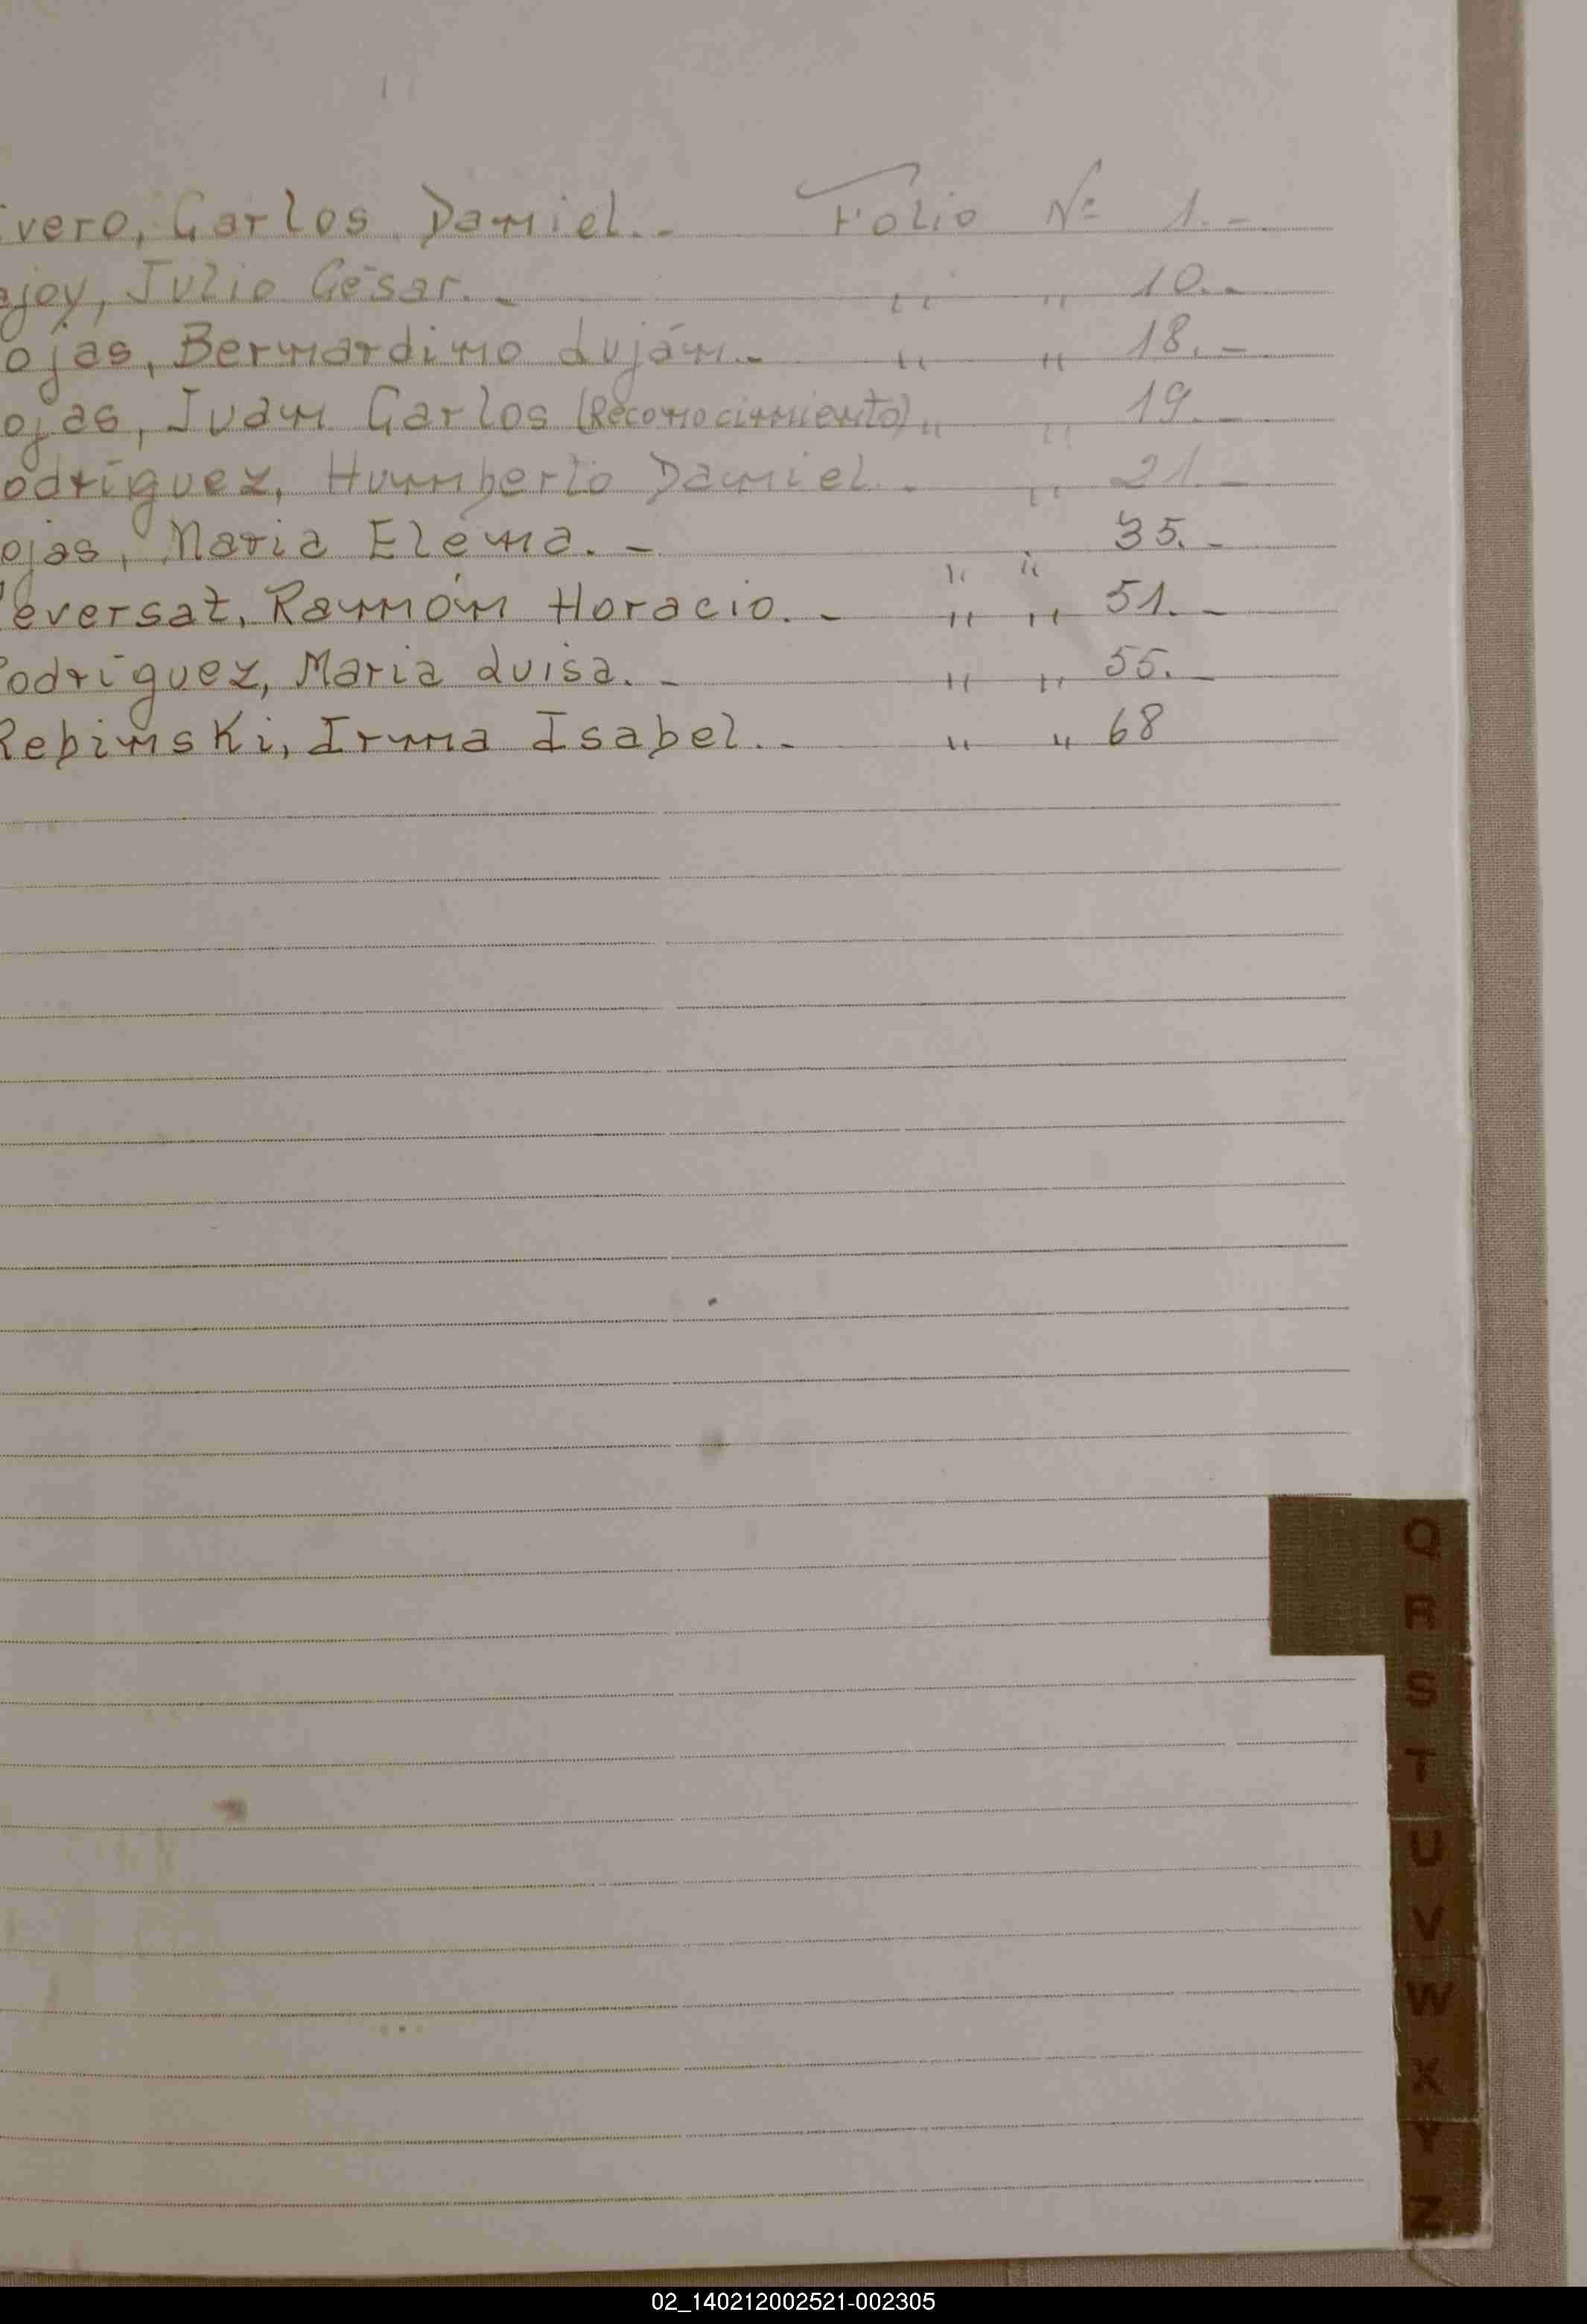 ivero, Carlos Daniel.- Folio Nº 1.-
ajoy, Julio César.- " " 10.-
ojas, Bernardino Luján.- " " 18.-
ojas, Juan Carlos (Reconocimiento) " " 19.-
odríguez, Humberto Daniel.- " 21.-
ojas, Maria Elena.- " " 35.-
Reversat, Ramón Horacio.- " " 51.-
Rodríguez, Maria Luisa.- " " 55.-
Rebinski, Irma Isabel.- " " 68
Q
R
S
T
U
V
W
X
Y
Z
02_140212002521-002305